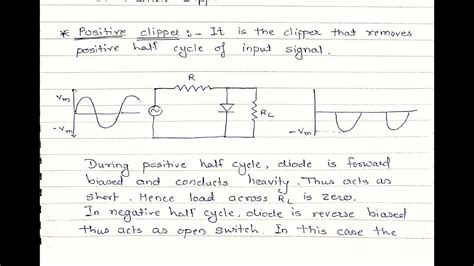 * Positive clipper :- It is the clipper that removes
positive half cycle of input signal.
R
Vm
-Vm
RL
-Vm
During positive half cycle, diode is forward
biased and conducts heavity. Thus acts as
short. Hence load across RL is zero.
In negative half cycle, diode is reverse biased
thus acts as open switch. In this case the